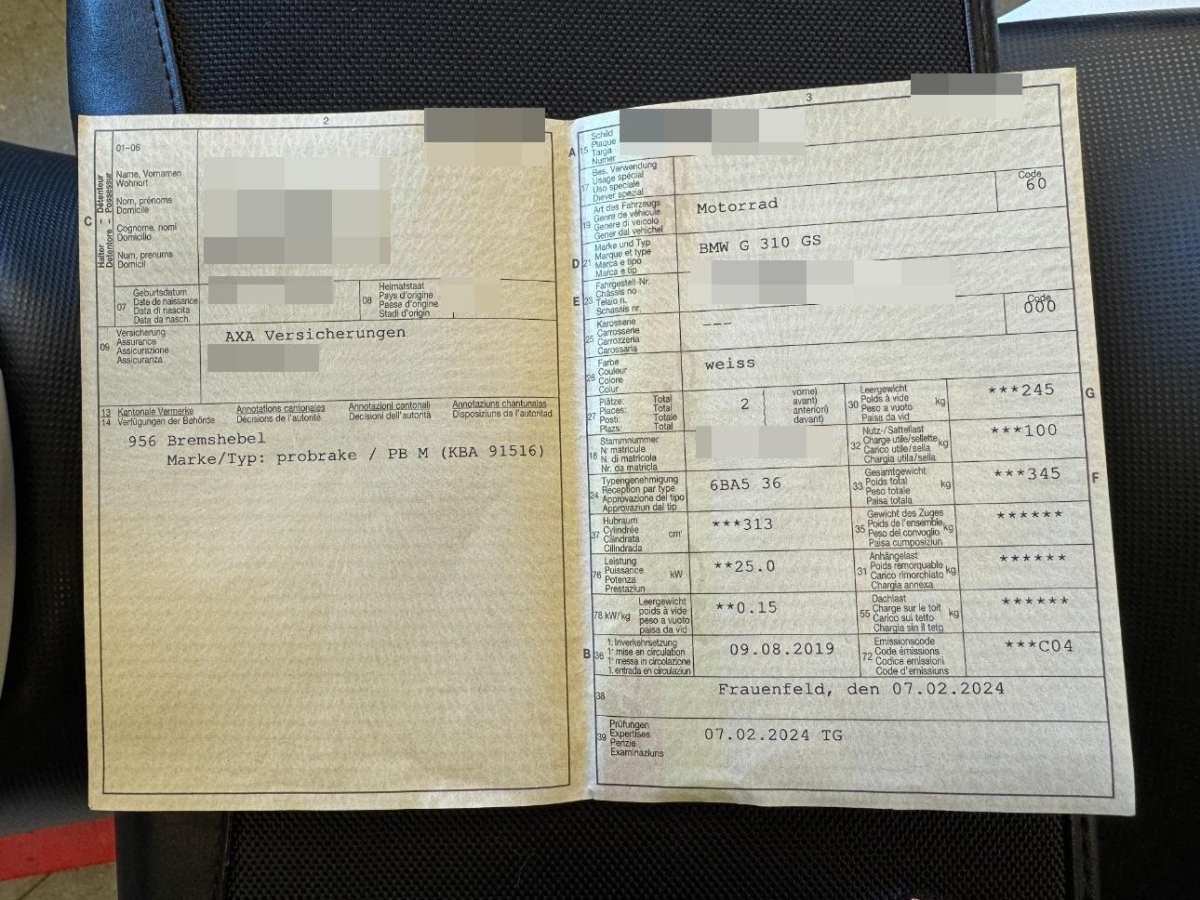 2
01-06
Halter - Détenteur
Detentore - Possessur
C
Name, Vornamen
Wohnort
Nom, prénoms
Domicile
Cognome, nomi
Domicilio
Num, prenums
Domicil
07
Geburtsdatum
Date de naissance
Data di nascita
Data da nasch.
08
Heimatstaat
Pays d'origine
Paese d'origine
Stadi d'origin
09
Versicherung
Assurance
Assicurazione
Assicuranza
AXA Versicherungen
13 Kantonale Vermerke Annotations cantonales Annotazioni cantonali Annotaziuns chantunalas
14 Verfügungen der Behörde Décisions de l'autorité Decisioni dell'autorità Disposiziuns da l'autoritad
956 Bremshebel
Marke/Typ: probrake / PB M (KBA 91516)
3
A
15
Schild
Plaque
Targa
Numer
17
Bes. Verwendung
Usage spécial
Uso speciale
Diever spezial
19
Art des Fahrzeugs
Genre de véhicule
Genere di veicolo
Gener dal vehichel
Motorrad
Code
60
D
21
Marke und Typ
Marque et type
Marca e tipo
Marca e tip
BMW G 310 GS
E
23
Fahrgestell-Nr.
Châssis no
Telaio n.
Schassis nr.
25
Karosserie
Carrosserie
Carrozzeria
Carossaria
---
Code
000
26
Farbe
Couleur
Colore
Colur
weiss
27
Plätze: Total
Places: Total
Posti: Totale
Plazs: Total
2
vorne)
avant)
anteriori)
davant)
30
Leergewicht
Poids à vide
Peso a vuoto
Paisa da vid
kg
***245
G
18
Stammnummer
N° matricule
N. di matricola
Nr. da matricla
32
Nutz-/Sattellast
Charge utile/sellette
Carico utile/sella
Chargia utila/sella
kg
***100
24
Typengenehmigung
Réception par type
Approvazione del tipo
Approvaziun dal tip
6BA5 36
33
Gesamtgewicht
Poids total
Peso totale
Paisa totala
kg
***345
F
37
Hubraum
Cylindrée
Cilindrata
Cilindrada
cm³
***313
35
Gewicht des Zuges
Poids de l'ensemble
Peso del convoglio
Paisa cumposiziun
kg
******
76
Leistung
Puissance
Potenza
Prestaziun
kW
**25.0
31
Anhängelast
Poids remorquable
Carico rimorchiato
Chargia annexa
kg
******
78 kW/kg
Leergewicht
poids à vide
peso a vuoto
paisa da vid
**0.15
55
Dachlast
Charge sur le toit
Carico sul tetto
Chargia sin il tetg
kg
******
B
36
1. Inverkehrsetzung
1ʳᵉ mise en circulation
1ª messa in circolazione
1. entrada en circulaziun
09.08.2019
72
Emissionscode
Code émissions
Codice emissioni
Code d'emissiuns
***C04
38
Frauenfeld, den 07.02.2024
39
Prüfungen
Expertises
Perizie
Examinaziuns
07.02.2024 TG